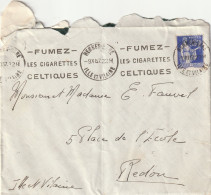 FUMEZ
LES CIGARETTES
CELTIQUES
FUMEZ
LES CIGARETTES
CELTIQUES
ILLE ET VILAINE
Monsieur et Madame E Fauvel
5 Place de l'Ecole
Redon
Ille et Vilaine